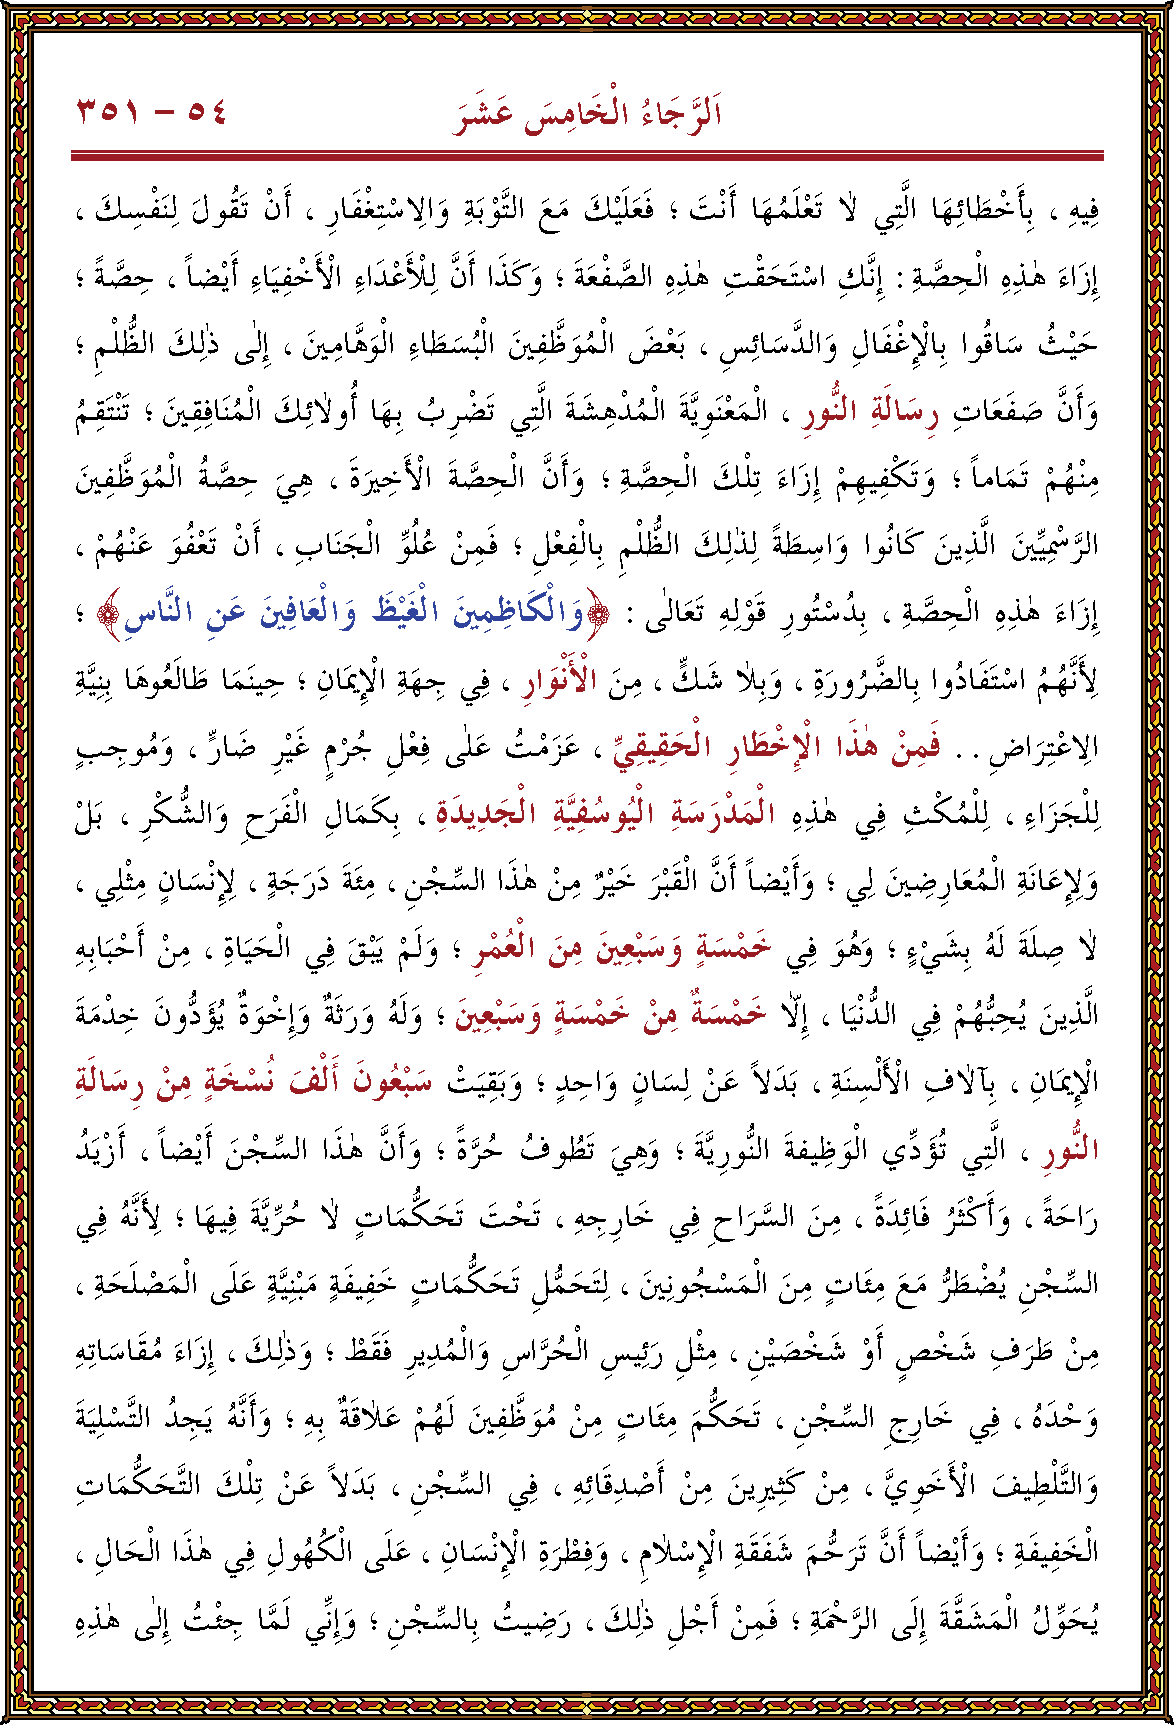 اَلرَّجَاءُ الْخَامِسَ عَشَرَ ٥٤ - ٣٥١
فِيهِ ، بِأَخْطَائِهَا الَّتِي لاٰ تَعْلَمُهَا أَنْتَ ؛ فَعَلَيْكَ مَعَ التَّوْبَةِ وَالاِسْتِغْفَارِ ، أَنْ تَقُولَ لِنَفْسِكَ ،
إِزَاءَ هٰذِهِ الْحِصَّةِ : إِنَّكِ اسْتَحَقْتِ هٰذِهِ الصَّفْعَةَ ؛ وَكَذَا أَنَّ لِلْأَعْدَاءِ الْأَخْفِيَاءِ أَيْضاً ، حِصَّةً ؛
حَيْثُ سَاقُوا بِالْإِغْفَالِ وَالدَّسَائِسِ ، بَعْضَ الْمُوَظَّفِينَ الْبُسَطَاءِ الْوَهَّامِينَ ، إِلٰى ذٰلِكَ الظُّلْمِ ؛
وَأَنَّ صَفَعَاتِ رِسَالَةِ النُّورِ ، الْمَعْنَوِيَّةَ الْمُدْهِشَةَ الَّتِي تَضْرِبُ بِهَا أُولاٰئِكَ الْمُنَافِقِينَ ؛ تَنْتَقِمُ
مِنْهُمْ تَمَاماً ؛ وَتَكْفِيهِمْ إِزَاءَ تِلْكَ الْحِصَّةِ ؛ وَأَنَّ الْحِصَّةَ الْأَخِيرَةَ ، هِيَ حِصَّةُ الْمُوَظَّفِينَ
الرَّسْمِيِّينَ الَّذِينَ كَانُوا وَاسِطَةً لِذٰلِكَ الظُّلْمِ بِالْفِعْلِ ؛ فَمِنْ عُلُوِّ الْجَنَابِ ، أَنْ تَعْفُوَ عَنْهُمْ ،
إِزَاءَ هٰذِهِ الْحِصَّةِ ، بِدُسْتُورِ قَوْلِهِ تَعَالٰى : ﴿وَالْكَاظِمِينَ الْغَيْظَ وَالْعَافِينَ عَنِ النَّاسِ﴾ ؛
لِأَنَّهُمُ اسْتَفَادُوا بِالضَّرُورَةِ ، وَبِلاٰ شَكٍّ ، مِنَ الْأَنْوَارِ ، فِي جِهَةِ الْإِيمَانِ ؛ حِينَمَا طَالَعُوهَا بِنِيَّةِ
الاِعْتِرَاضِ . . فَمِنْ هٰذَا الْإِخْطَارِ الْحَقِيقِيِّ ، عَزَمْتُ عَلٰى فِعْلِ جُرْمٍ غَيْرِ ضَارٍّ ، وَمُوجِبٍ
لِلْجَزَاءِ ، لِلْمُكْثِ فِي هٰذِهِ الْمَدْرَسَةِ الْيُوسُفِيَّةِ الْجَدِيدَةِ ، بِكَمَالِ الْفَرَحِ وَالشُّكْرِ ، بَلْ
وَلِإِعَانَةِ الْمُعَارِضِينَ لِي ؛ وَأَيْضاً أَنَّ الْقَبْرَ خَيْرٌ مِنْ هٰذَا السِّجْنِ ، مِئَةَ دَرَجَةٍ ، لِإِنْسَانٍ مِثْلِي ،
لاٰ صِلَةَ لَهُ بِشَيْءٍ ؛ وَهُوَ فِي خَمْسَةٍ وَسَبْعِينَ مِنَ الْعُمْرِ ؛ وَلَمْ يَبْقَ فِي الْحَيَاةِ ، مِنْ أَحْبَابِهِ
الَّذِينَ يُحِبُّهُمْ فِي الدُّنْيَا ، إِلاّٰ خَمْسَةٌ مِنْ خَمْسَةٍ وَسَبْعِينَ ؛ وَلَهُ وَرَثَةٌ وَإِخْوَةٌ يُؤَدُّونَ خِدْمَةَ
الْإِيمَانِ ، بِآلاٰفِ الْأَلْسِنَةِ ، بَدَلاً عَنْ لِسَانٍ وَاحِدٍ ؛ وَبَقِيَتْ سَبْعُونَ أَلْفَ نُسْخَةٍ مِنْ رِسَالَةِ
النُّورِ ، الَّتِي تُؤَدِّي الْوَظِيفَةَ النُّورِيَّةَ ؛ وَهِيَ تَطُوفُ حُرَّةً ؛ وَأَنَّ هٰذَا السِّجْنَ أَيْضاً ، أَزْيَدُ
رَاحَةً ، وَأَكْثَرُ فَائِدَةً ، مِنَ السَّرَاحِ فِي خَارِجِهِ ، تَحْتَ تَحَكُّمَاتٍ لاٰ حُرِّيَّةَ فِيهَا ؛ لِأَنَّهُ فِي
السِّجْنِ يُضْطَرُّ مَعَ مِئَاتٍ مِنَ الْمَسْجُونِينَ ، لِتَحَمُّلِ تَحَكُّمَاتٍ خَفِيفَةٍ مَبْنِيَّةٍ عَلَى الْمَصْلَحَةِ ،
مِنْ طَرَفِ شَخْصٍ أَوْ شَخْصَيْنِ ، مِثْلِ رَئِيسِ الْحُرَّاسِ وَالْمُدِيرِ فَقَطْ ؛ وَذٰلِكَ ، إِزَاءَ مُقَاسَاتِهِ
وَحْدَهُ ، فِي خَارِجِ السِّجْنِ ، تَحَكُّمَ مِئَاتٍ مِنْ مُوَظَّفِينَ لَهُمْ عَلاٰقَةٌ بِهِ ؛ وَأَنَّهُ يَجِدُ التَّسْلِيَةَ
وَالتَّلْطِيفَ الْأَخَوِيَّ ، مِنْ كَثِيرِينَ مِنْ أَصْدِقَائِهِ ، فِي السِّجْنِ ، بَدَلاً عَنْ تِلْكَ التَّحَكُّمَاتِ
الْخَفِيفَةِ ؛ وَأَيْضاً أَنَّ تَرَحُّمَ شَفَقَةِ الْإِسْلاٰمِ ، وَفِطْرَةِ الْإِنْسَانِ ، عَلَى الْكُهُولِ فِي هٰذَا الْحَالِ ،
يُحَوِّلُ الْمَشَقَّةَ إِلَى الرَّحْمَةِ ؛ فَمِنْ أَجْلِ ذٰلِكَ ، رَضِيتُ بِالسِّجْنِ ؛ وَإِنِّي لَمَّا جِئْتُ إِلٰى هٰذِهِ